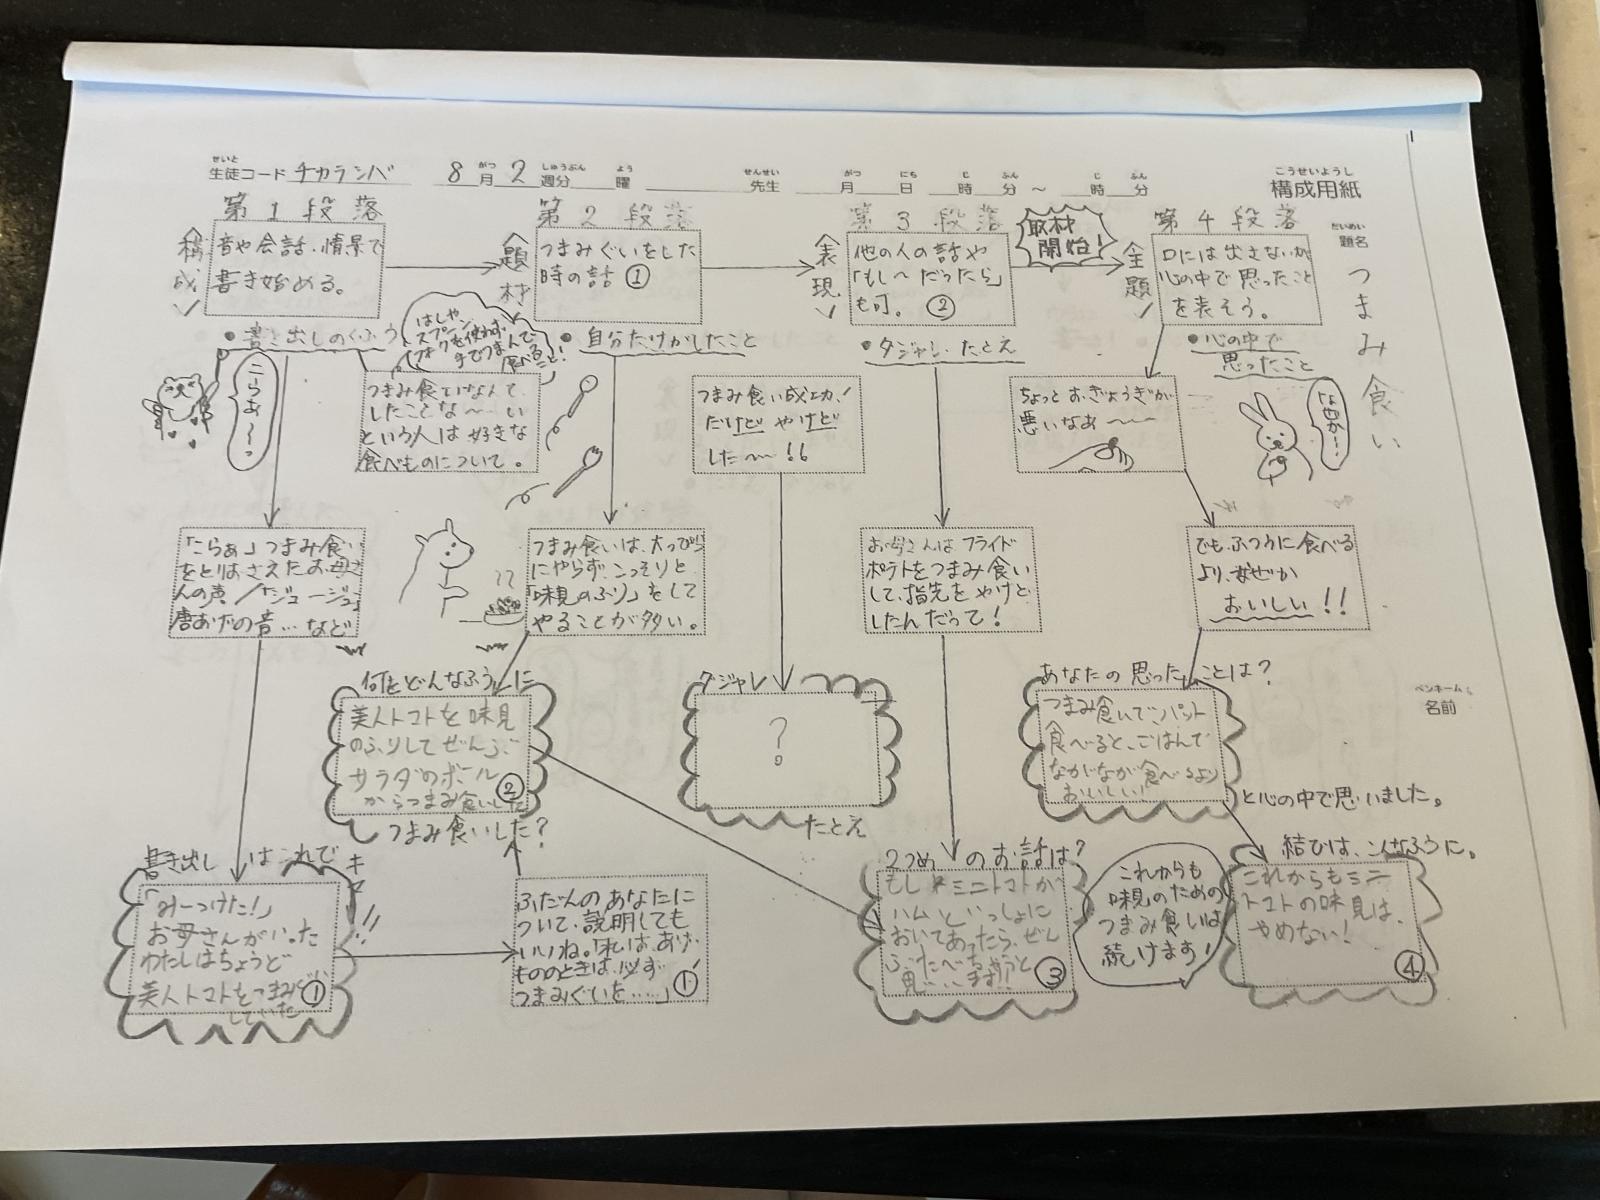 生徒コード チカラシバ 8月2週分 曜 先生 月 日 時 分 ~ 時 分
構成用紙
題名
つまみ食い
ペンネーム
名前
第1段落
構成
音や会話、情景で
書き始める。
第2段落
題材
つまみぐいをした
時の話 ①
第3段落
表現
他の人の話や
「もし〜だったら」
も可。 ②
取材
開始!
第4段落
全題
口には出さないが
心の中で思ったこと
を表そう。
●書き出しのくふう
はしや
スプーン、
フォクを使わず
手でつまんで
食べること!
●自分だけがしたこと
●ダジャレ、たとえ
●心の中で
思ったこと
こらあ〜っ
つまみ食いなんて、
したことな〜い
という人は好きな
食べものについて。
つまみ食い成功!
だけど やけど
した〜!!
ちょっとおぎょうぎが
悪いなぁ〜
「こらぁ」つまみ食い
をとりおさえたお母さ
んの声/「ジュージュ」
唐あげの音…など
つまみ食いは、大っぴら
にやらず、こっそりと
「味見のふり」をして
やることが多い。
お母さんはフライド
ポテトをつまみ食い
して、指先をやけど
したんだって!
でも、ふつうに食べる
より、なぜか
おいしい!!
何をどんなふうに
美人トマトを味見
のふりしてぜんぶ
サラダのボール
からつまみ食いした ②
つまみ食いした?
ダジャレ
?
たとえ
あなたの思ったことは?
つまみ食いで、パット
食べると、ごはんで
ながなが食べるより
おいしい!
と心の中で思いました。
書き出しはこれで
キマ
!!
「みーつけた!」
お母さんがいった
わたしはちょうど
美人トマトをつまみぐい
していた ①
ふだんのあなたに
ついて、説明しても
いいね。「私は、あげ
もののときは、必ず
つまみぐいを……」 ①'
2つめのお話は?
もしミニトマトが
ハムといっしょに
おいてあったら、ぜん
ぶたべちゃうと
③
これからも
味見のための
つまみ食いは
続けます!
結びは、こんなふうに。
これからもミニ
トマトの味見は、
やめない!
④